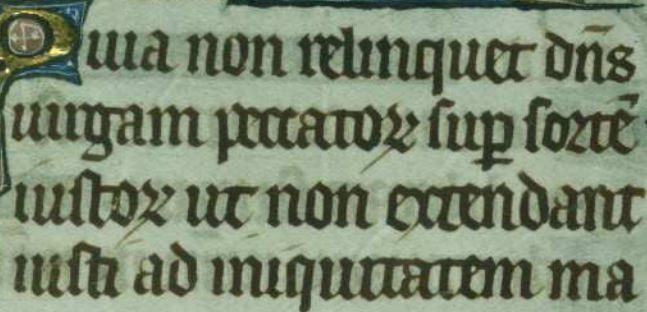 Quia non relinquet dn̄s
uirgam peccatoꝝ suꝑ sortē
iustoꝝ ut non extendant
iusti ad iniquitatem ma